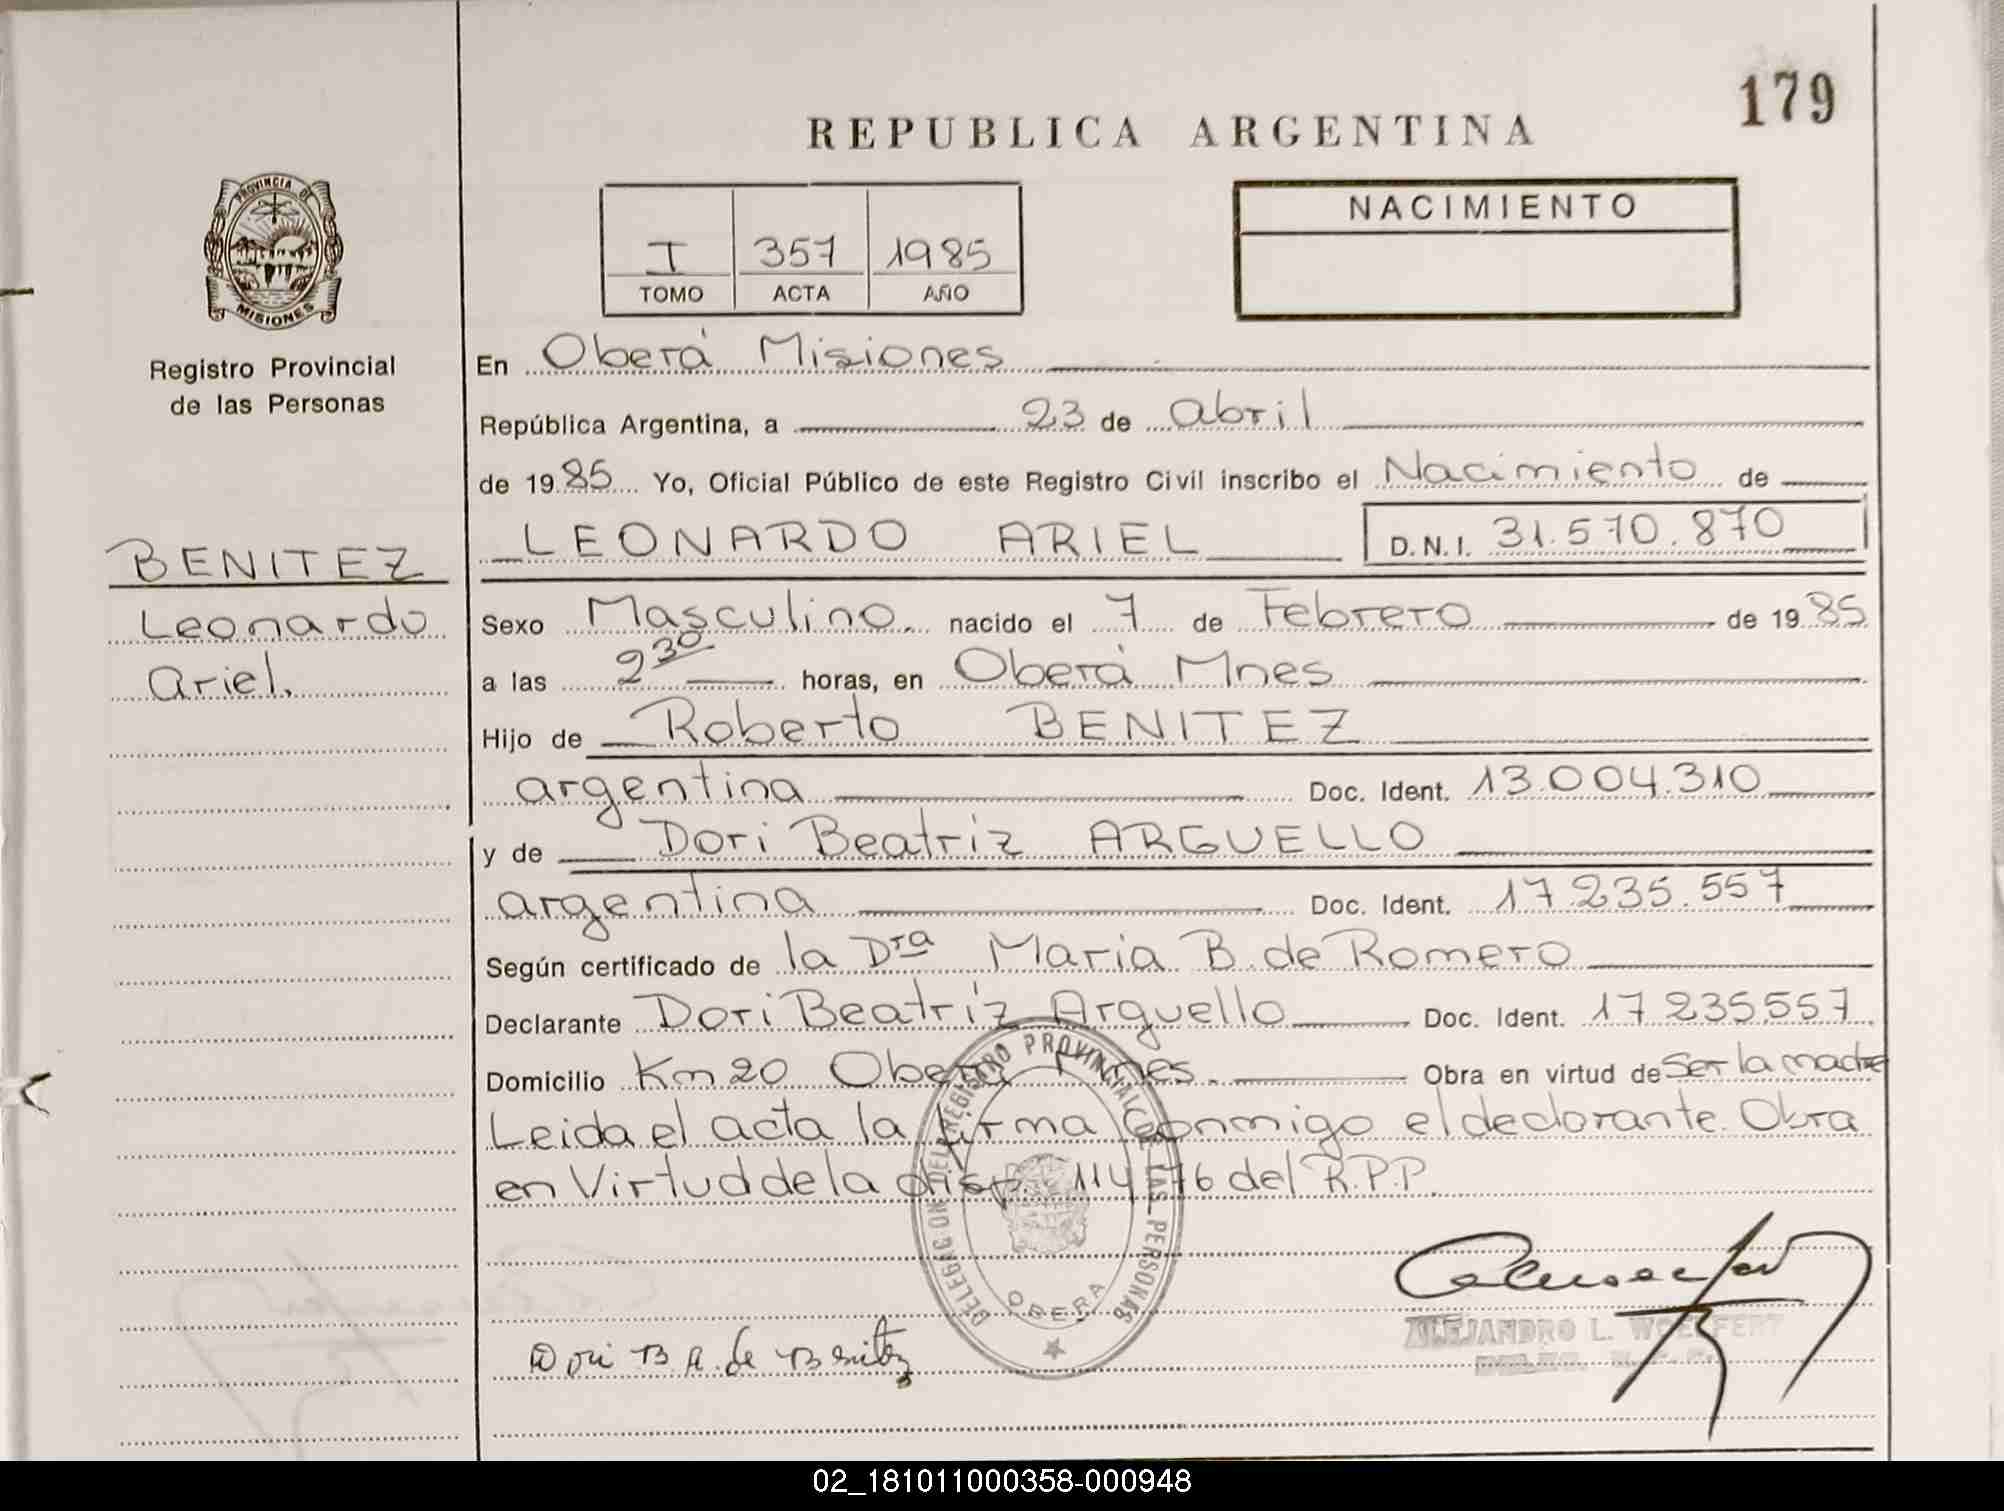 179
REPUBLICA ARGENTINA
PROVINCIA DE
MISIONES
Registro Provincial
de las Personas
I 357 1985
TOMO ACTA AÑO
NACIMIENTO
En Oberá Misiones
República Argentina, a 23 de abril
de 1985 Yo, Oficial Público de este Registro Civil inscribo el Nacimiento de
LEONARDO ARIEL D.N.I. 31.570.870
BENITEZ
Leonardo
Ariel.
Sexo Masculino. nacido el 7 de Febrero de 1985
a las 2 30 horas, en Oberá Mnes
Hijo de Roberto BENITEZ
argentina Doc. Ident. 13.004.310
y de Dori Beatriz ARGUELLO
argentina Doc. Ident. 17.235.557
Según certificado de la Dra Maria B. de Romero
Declarante Dori Beatriz Arguello Doc. Ident. 17.235.557
Domicilio Km 20 Oberá Mnes. Obra en virtud de Ser la madre
Leida el acta la firma conmigo el declarante. Obra
en Virtud de la disp. 114/76 del R.P.P.
DELEGACION DEL REGISTRO PROVINCIAL DE LAS PERSONAS
OBERA
Dori B A. de Benitez
ALEJANDRO L. WOELFERT
02_181011000358-000948